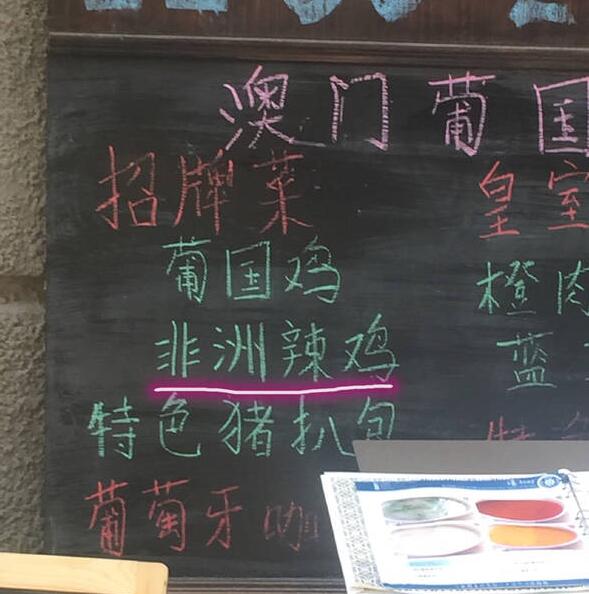 澳门葡国
招牌菜
葡国鸡
非洲辣鸡
特色猪扒包
葡萄牙咖
皇室
橙肉
蓝